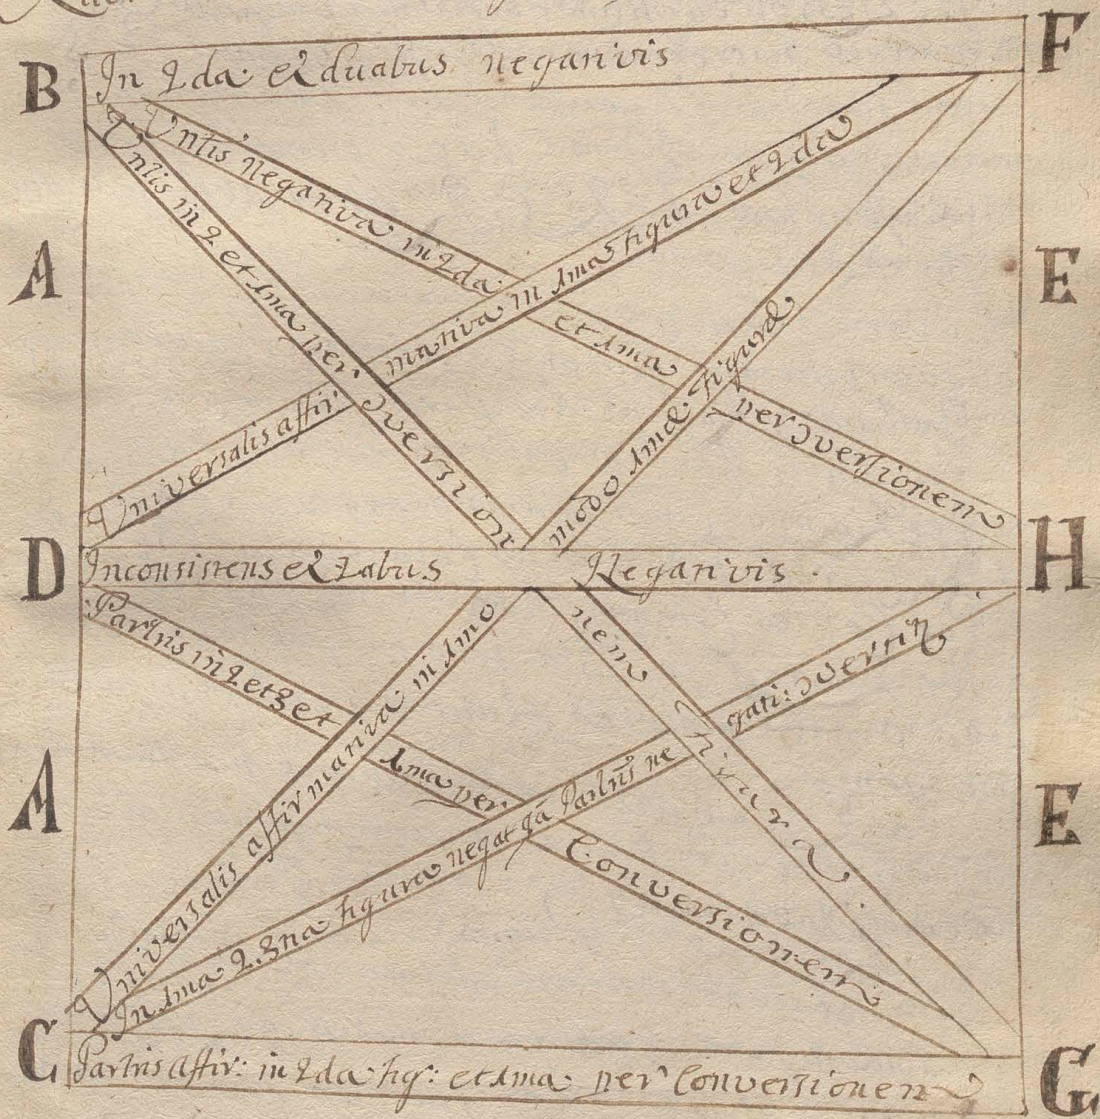 F
B In 2da et duabus negativis
Vnlis negativa in 2da et 1ma per ɔversionem
Vnlis in 2 et 1ma per ɔversion
Universalis affirmativa in 1ma figura et 2da
modo 1mae figurae
A
E
D Inconsistens ex 2abus Negativis . H
Partris in 2 et 3 et 1ma per Conversionem
Universalis affirmativa in 1mo
nem figura
In 1ma 2. 3na figura negat ga Partris ne gati: ɔvertir
A
E
C Partris affir: in 2da fig: et 1ma per Conversionem G